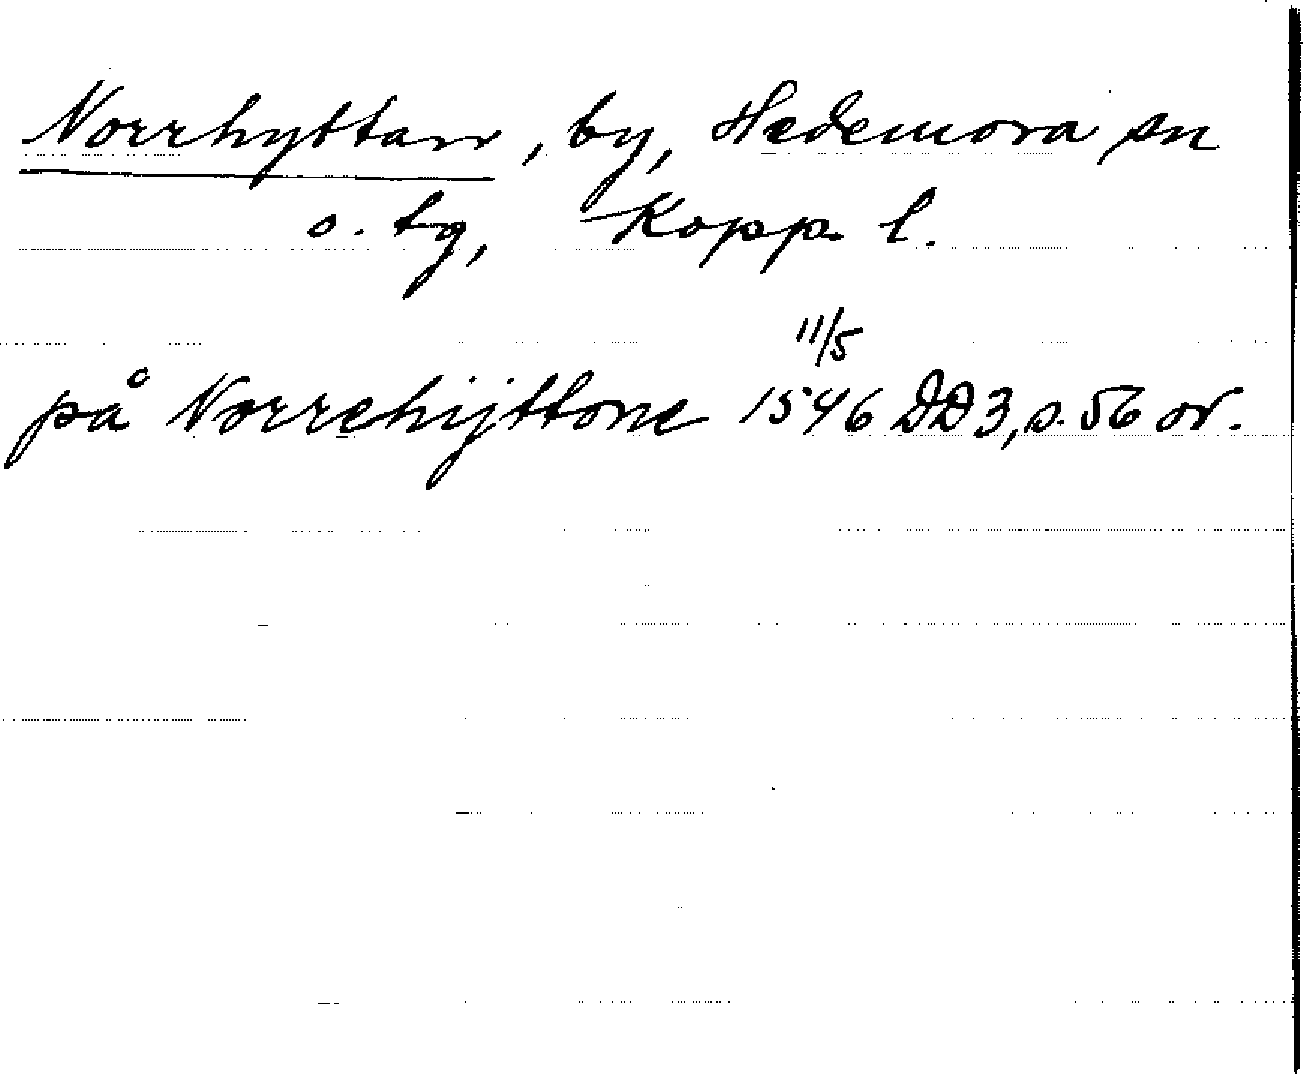 Norrhyttan, by, Hedemora sn
o. tg, Kopp. l.
11/5
på Norrehijttone 1546 DD3, s. 56 or.